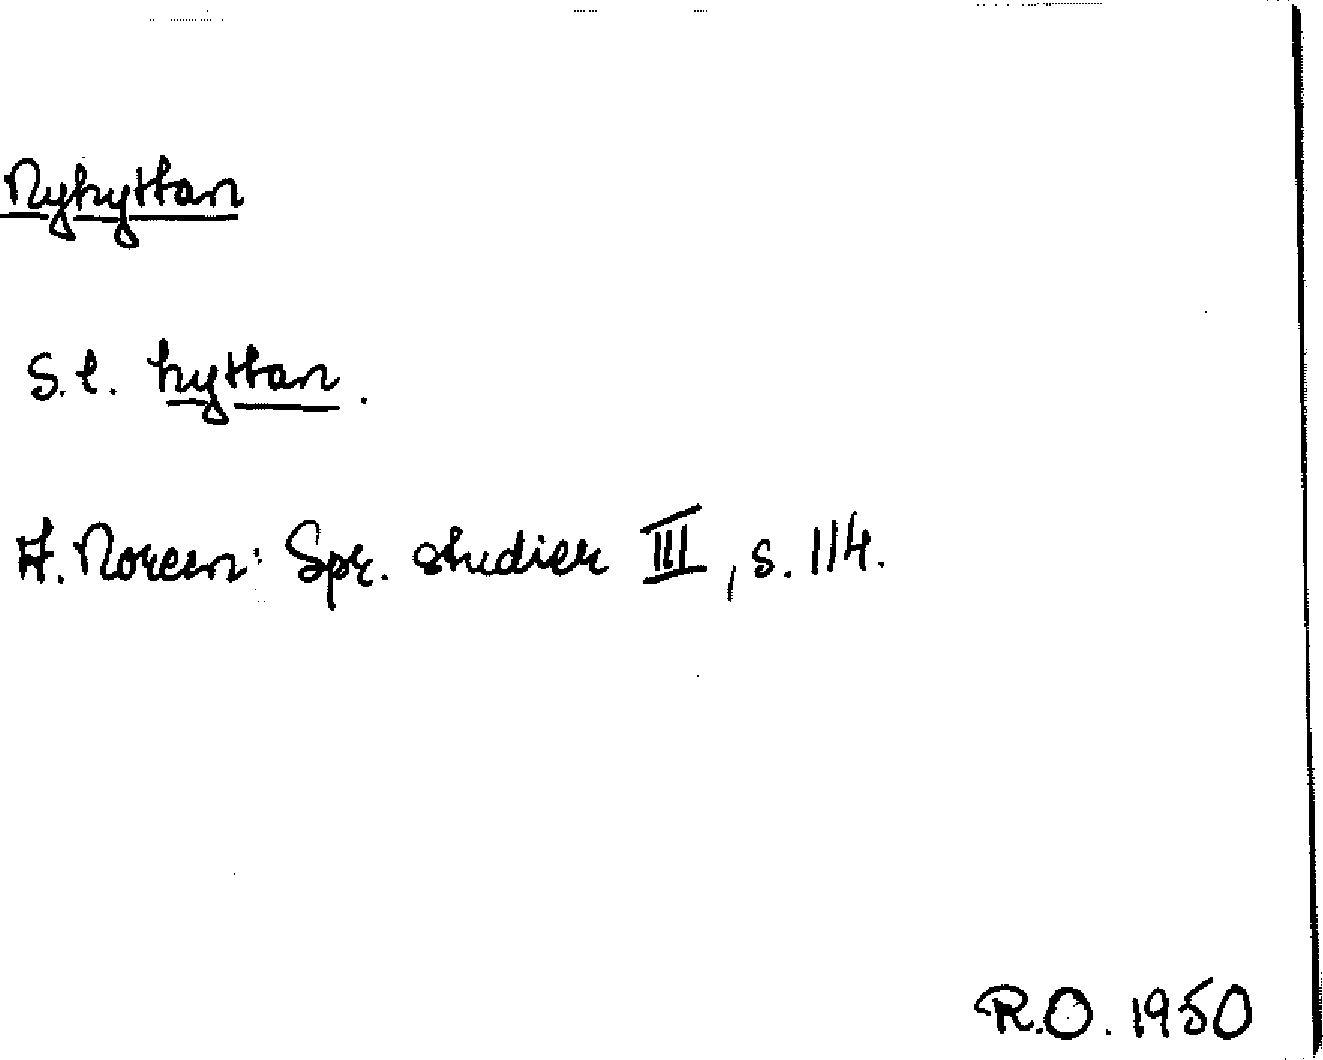 Nyhyttan
S.l. hyttan.
A. Noreen: Spr. studier III, s. 114.
R.O. 1950